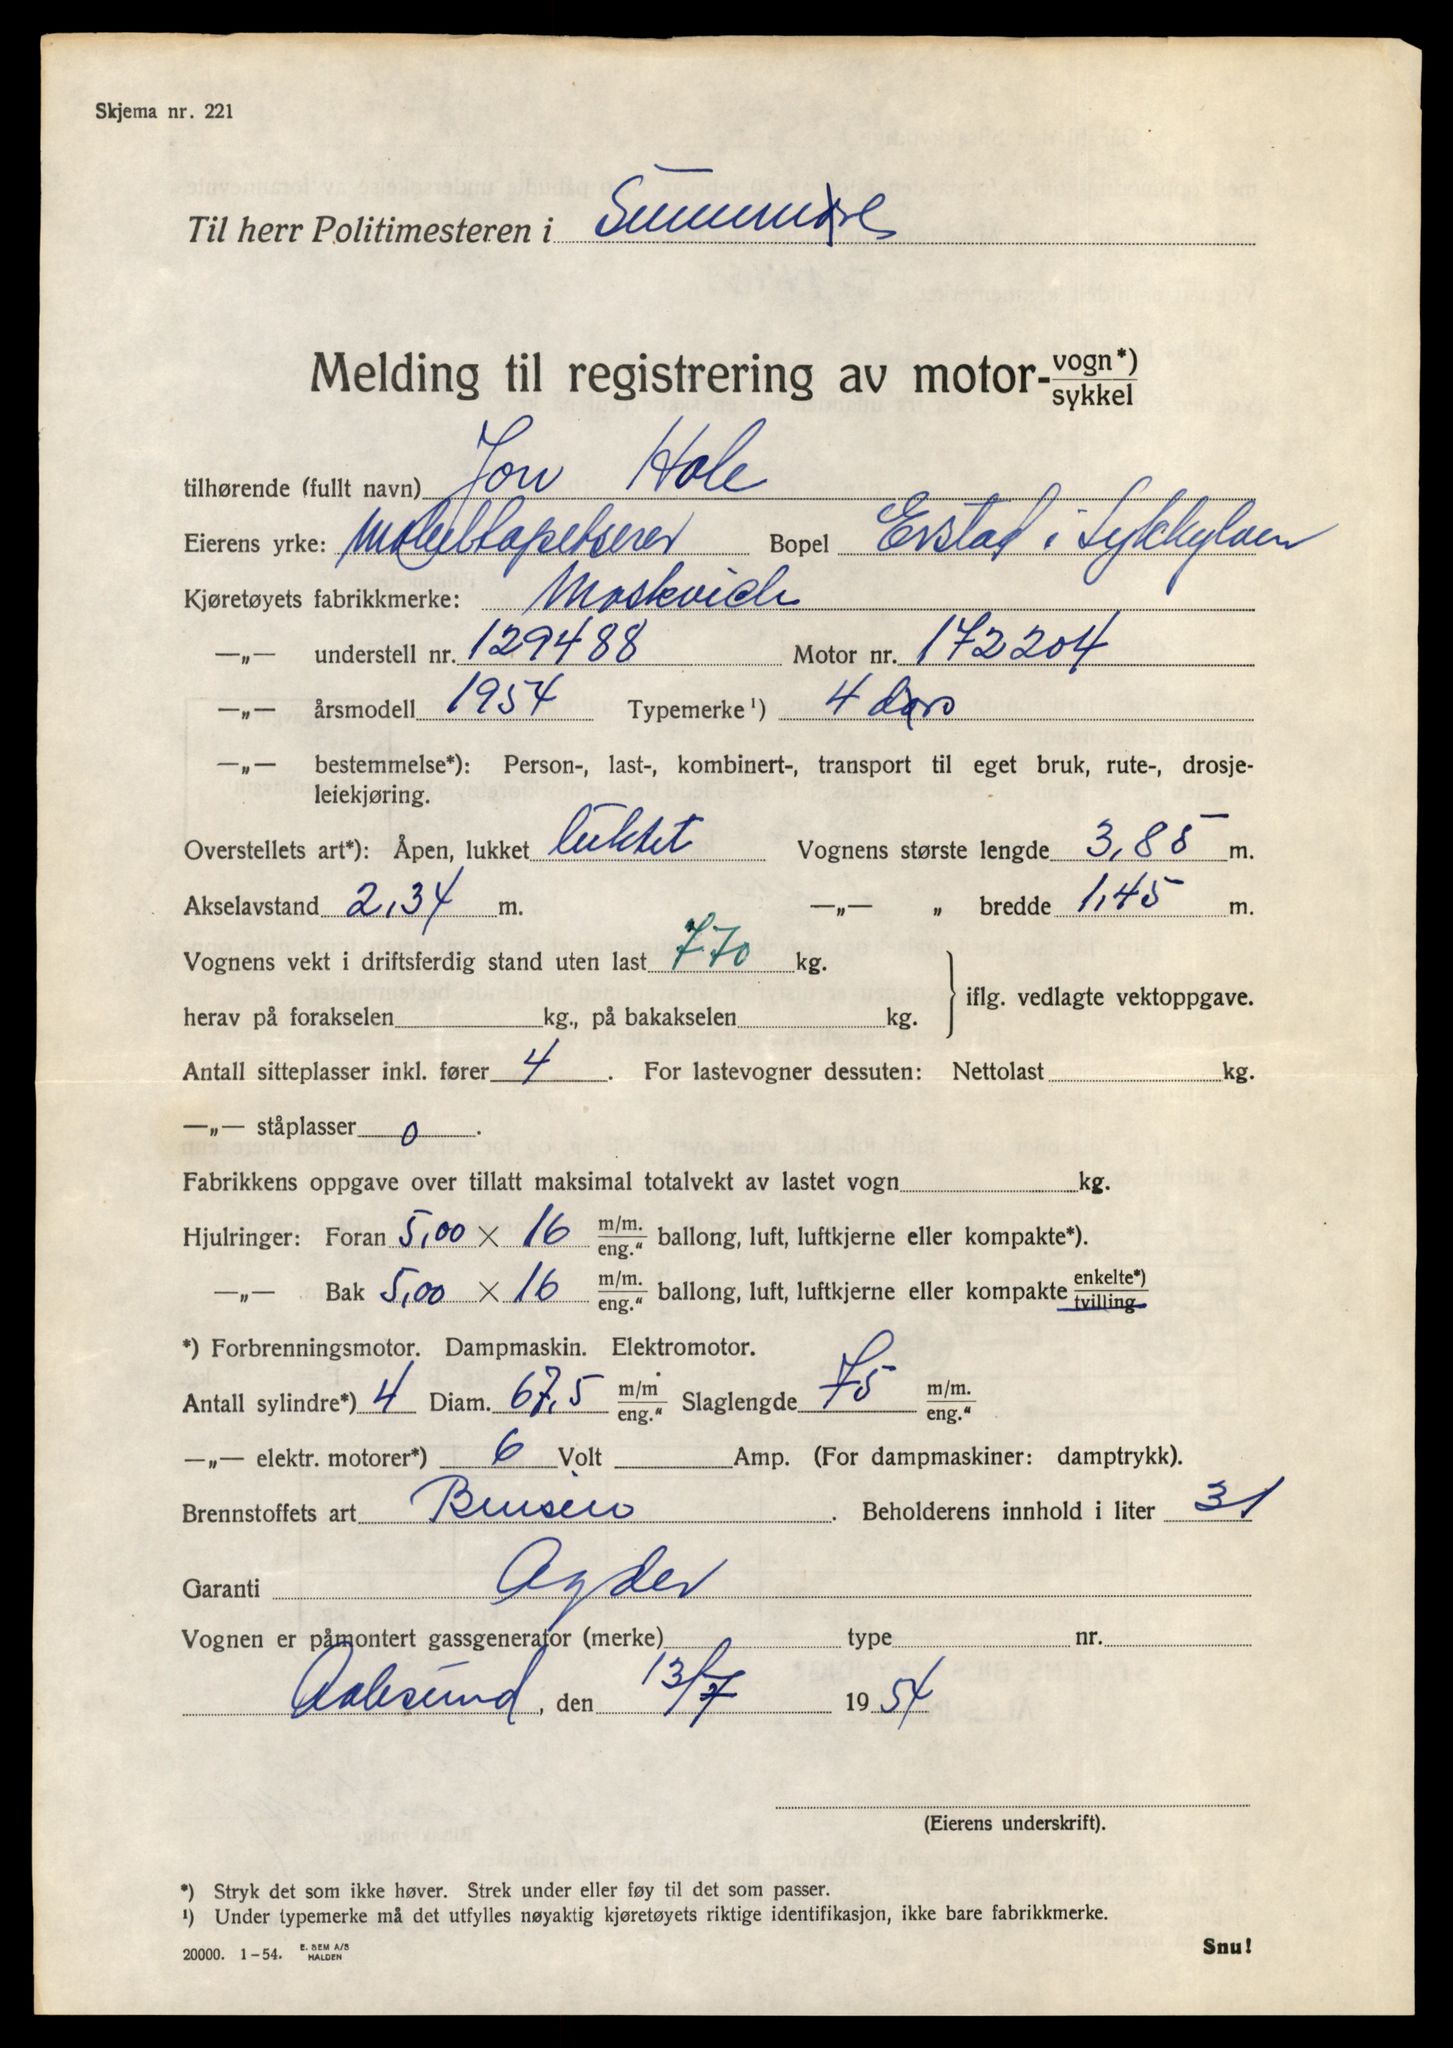 Skjema nr. 221
Til herr Politimesteren i Sunnmøre
Melding til registrering av motor-vogn*)
sykkel
tilhørende (fullt navn) Jon Hole
Eierens yrke: Møbeltapetserer Bopel Erstad i Sykkylven
Kjøretøyets fabrikkmerke: Moskvich
—„— understell nr. 129488 Motor nr. 172204
—„— årsmodell 1954 Typemerke¹) 4 dørs
—„— bestemmelse*): Person-, last-, kombinert-, transport til eget bruk, rute-, drosje-
leiekjøring.
Overstellets art*): Åpen, lukket lukket Vognens største lengde 3,85 m.
Akselavstand 2,34 m. —„— „ bredde 1,45 m.
Vognens vekt i driftsferdig stand uten last 770 kg.
iflg. vedlagte vektoppgave.
herav på forakselen kg., på bakakselen kg.
Antall sitteplasser inkl. fører 4. For lastevogner dessuten: Nettolast kg.
—„— ståplasser 0.
Fabrikkens oppgave over tillatt maksimal totalvekt av lastet vogn kg.
Hjulringer: Foran 5,00 × 16 m/m. eng.“ ballong, luft, luftkjerne eller kompakte*).
—„— Bak 5,00 × 16 m/m. eng.“ ballong, luft, luftkjerne eller kompakte enkelte*) tvilling
*) Forbrenningsmotor. Dampmaskin. Elektromotor.
Antall sylindre*) 4 Diam. 67,5 m/m eng.“ Slaglengde 75 m/m. eng.“
—„— elektr. motorer*) 6 Volt Amp. (For dampmaskiner: damptrykk).
Brennstoffets art Bensin. Beholderens innhold i liter 31
Garanti Agder
Vognen er påmontert gassgenerator (merke) type nr.
Aalesund, den 13/7 1954
(Eierens underskrift).
*) Stryk det som ikke høver. Strek under eller føy til det som passer.
¹) Under typemerke må det utfylles nøyaktig kjøretøyets riktige identifikasjon, ikke bare fabrikkmerke.
20000. 1-54. E. SEM A/S HALDEN
Snu!